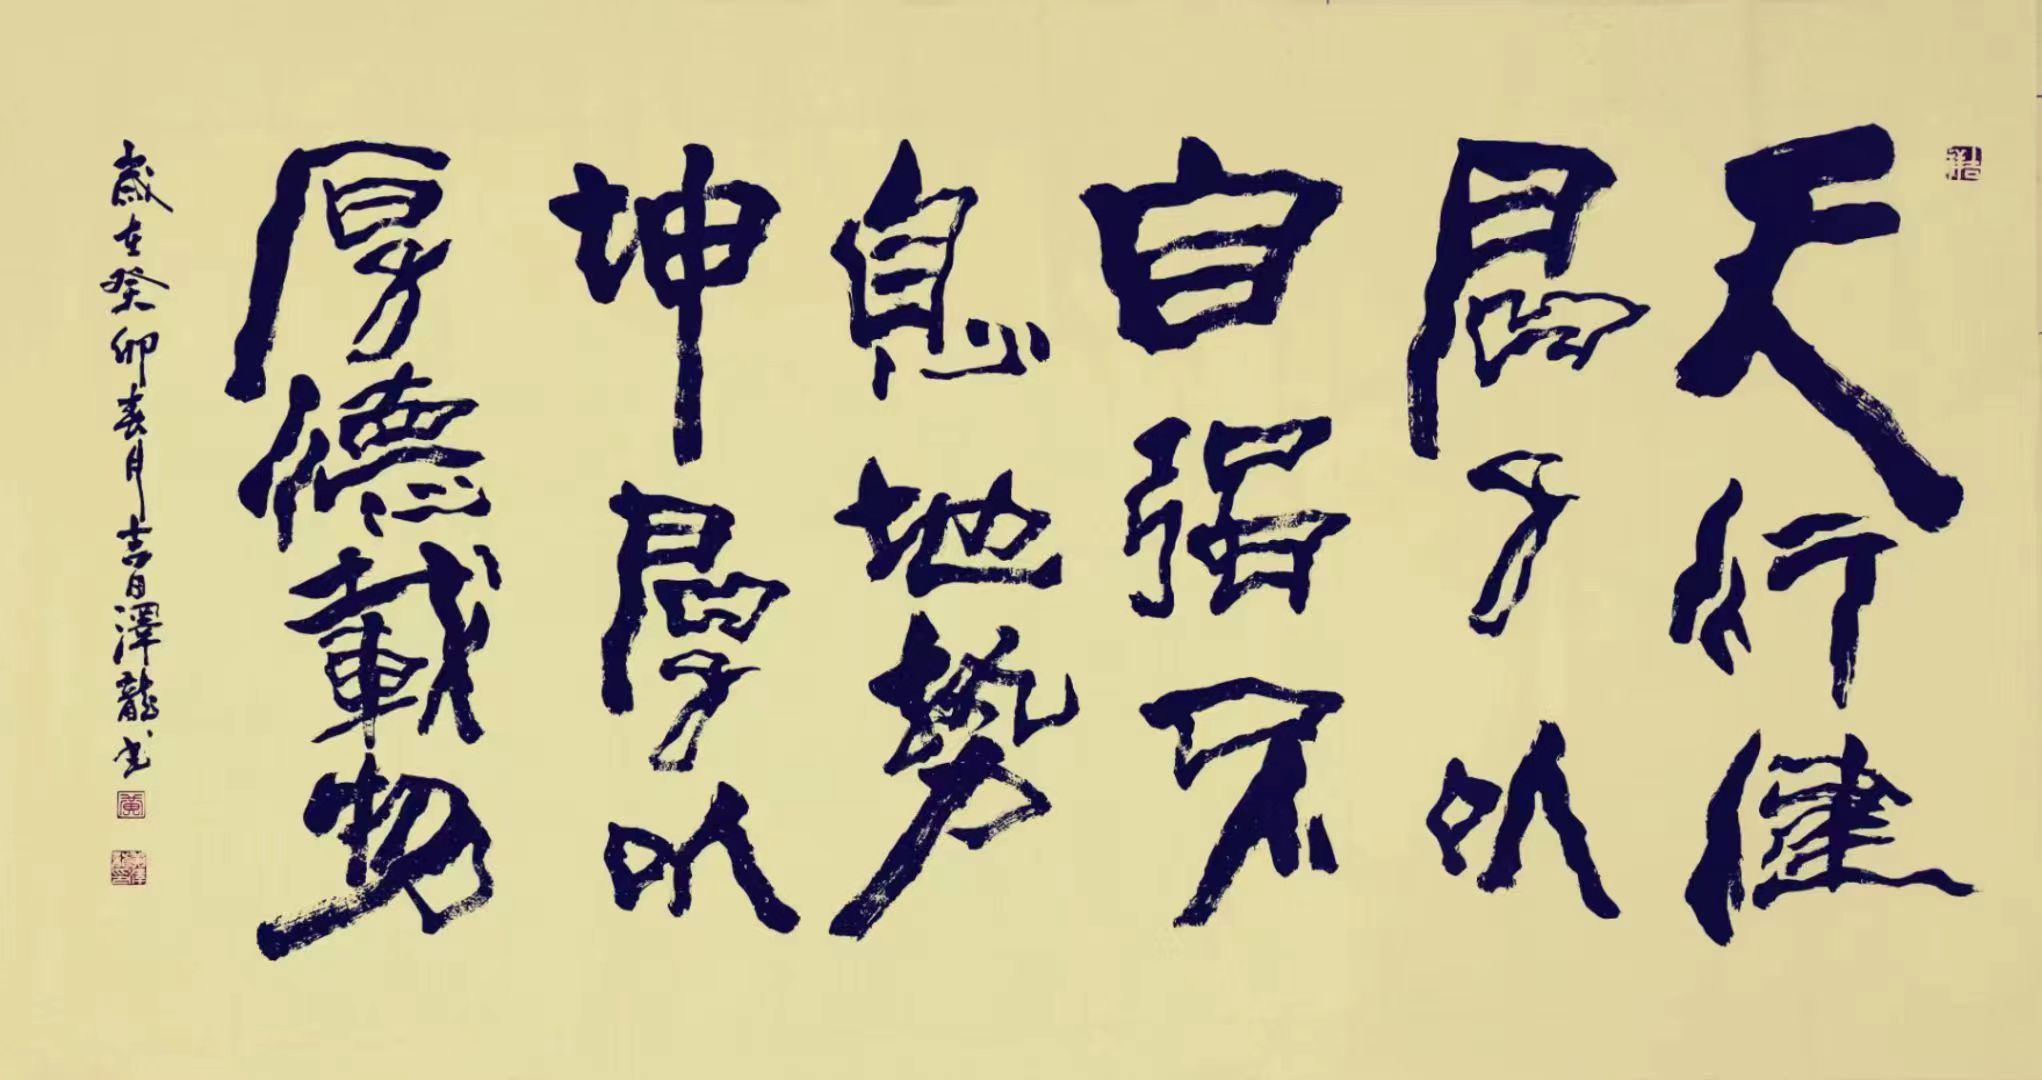 天行健
君子以
自强不
息地势
坤君子以
厚德載物
歲在癸卯春月吉日澤龍书
黄